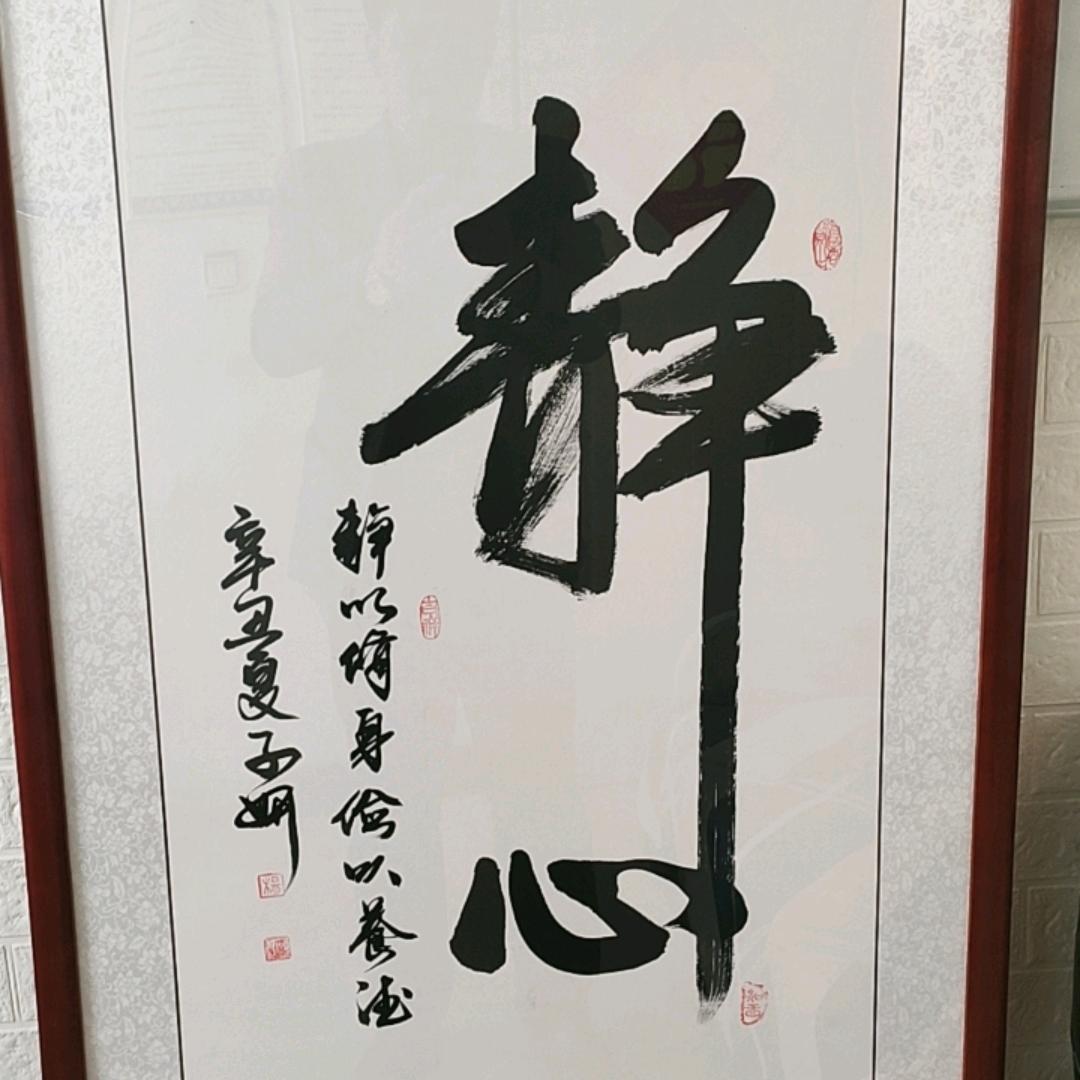 静心
静以脩身俭以养德
辛丑夏子姗